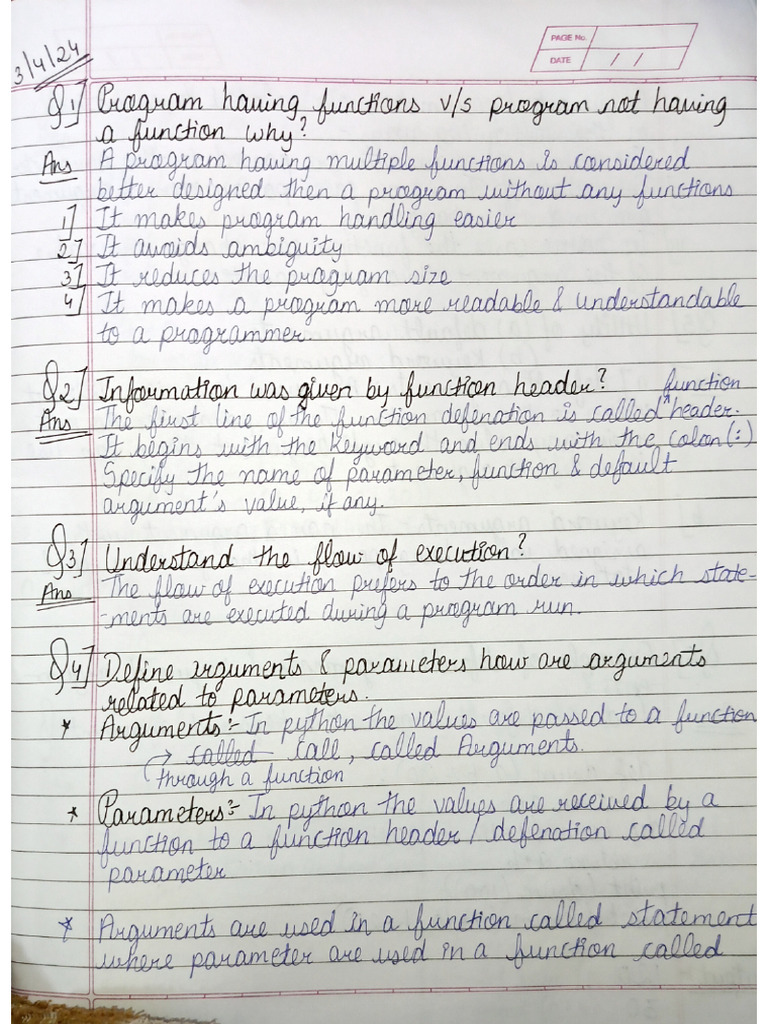 PAGE No.
DATE / /
3/4/24
Q1] Program having functions v/s program not having
a function why?
Ans A program having multiple functions is considered
better designed then a program without any functions
1] It makes program handling easier
2] It avoids ambiguity
3] It reduces the program size
4] It makes a program more readable & understandable
to a programmer.
Q2] Information was given by function header? function
Ans The first line of the function defenation is called ^ header.
It begins with the keyword and ends with the colon (:)
Specify the name of parameter, function & default
argument's value, if any.
Q3] Understand the flow of execution?
Ans The flow of execution prefers to the order in which state-
-ments are executed during a program run.
Q4] Define arguments & parameters how are arguments
related to parameters.
* Arguments:- In python the values are passed to a function
→ called call, called Arguments.
through a function
* Parameters:- In python the values are received by a
function to a function header / defenation called
parameter
* Arguments are used in a function called statement
where parameter are used in a function called